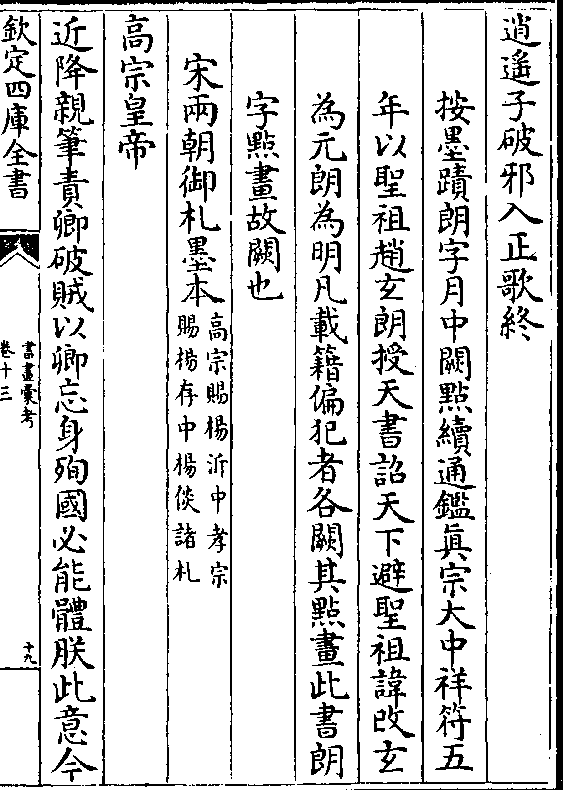 逍遙子破邪入正歌終
按墨蹟朗字月中闕點續通鑑真宗大中祥符五
年以聖祖趙玄朗授天書詔天下避聖祖諱改玄
為元朗為明凡載籍偏犯者各闕其點畫此書朗
字點畫故闕也
宋兩朝御札墨本高宗賜楊沂中孝宗
賜楊存中楊倓諸札
高宗皇帝
近降親筆責卿破賊以卿忘身殉國必能體朕此意今
欽定四庫全書
書畫彙考
卷十三
十九